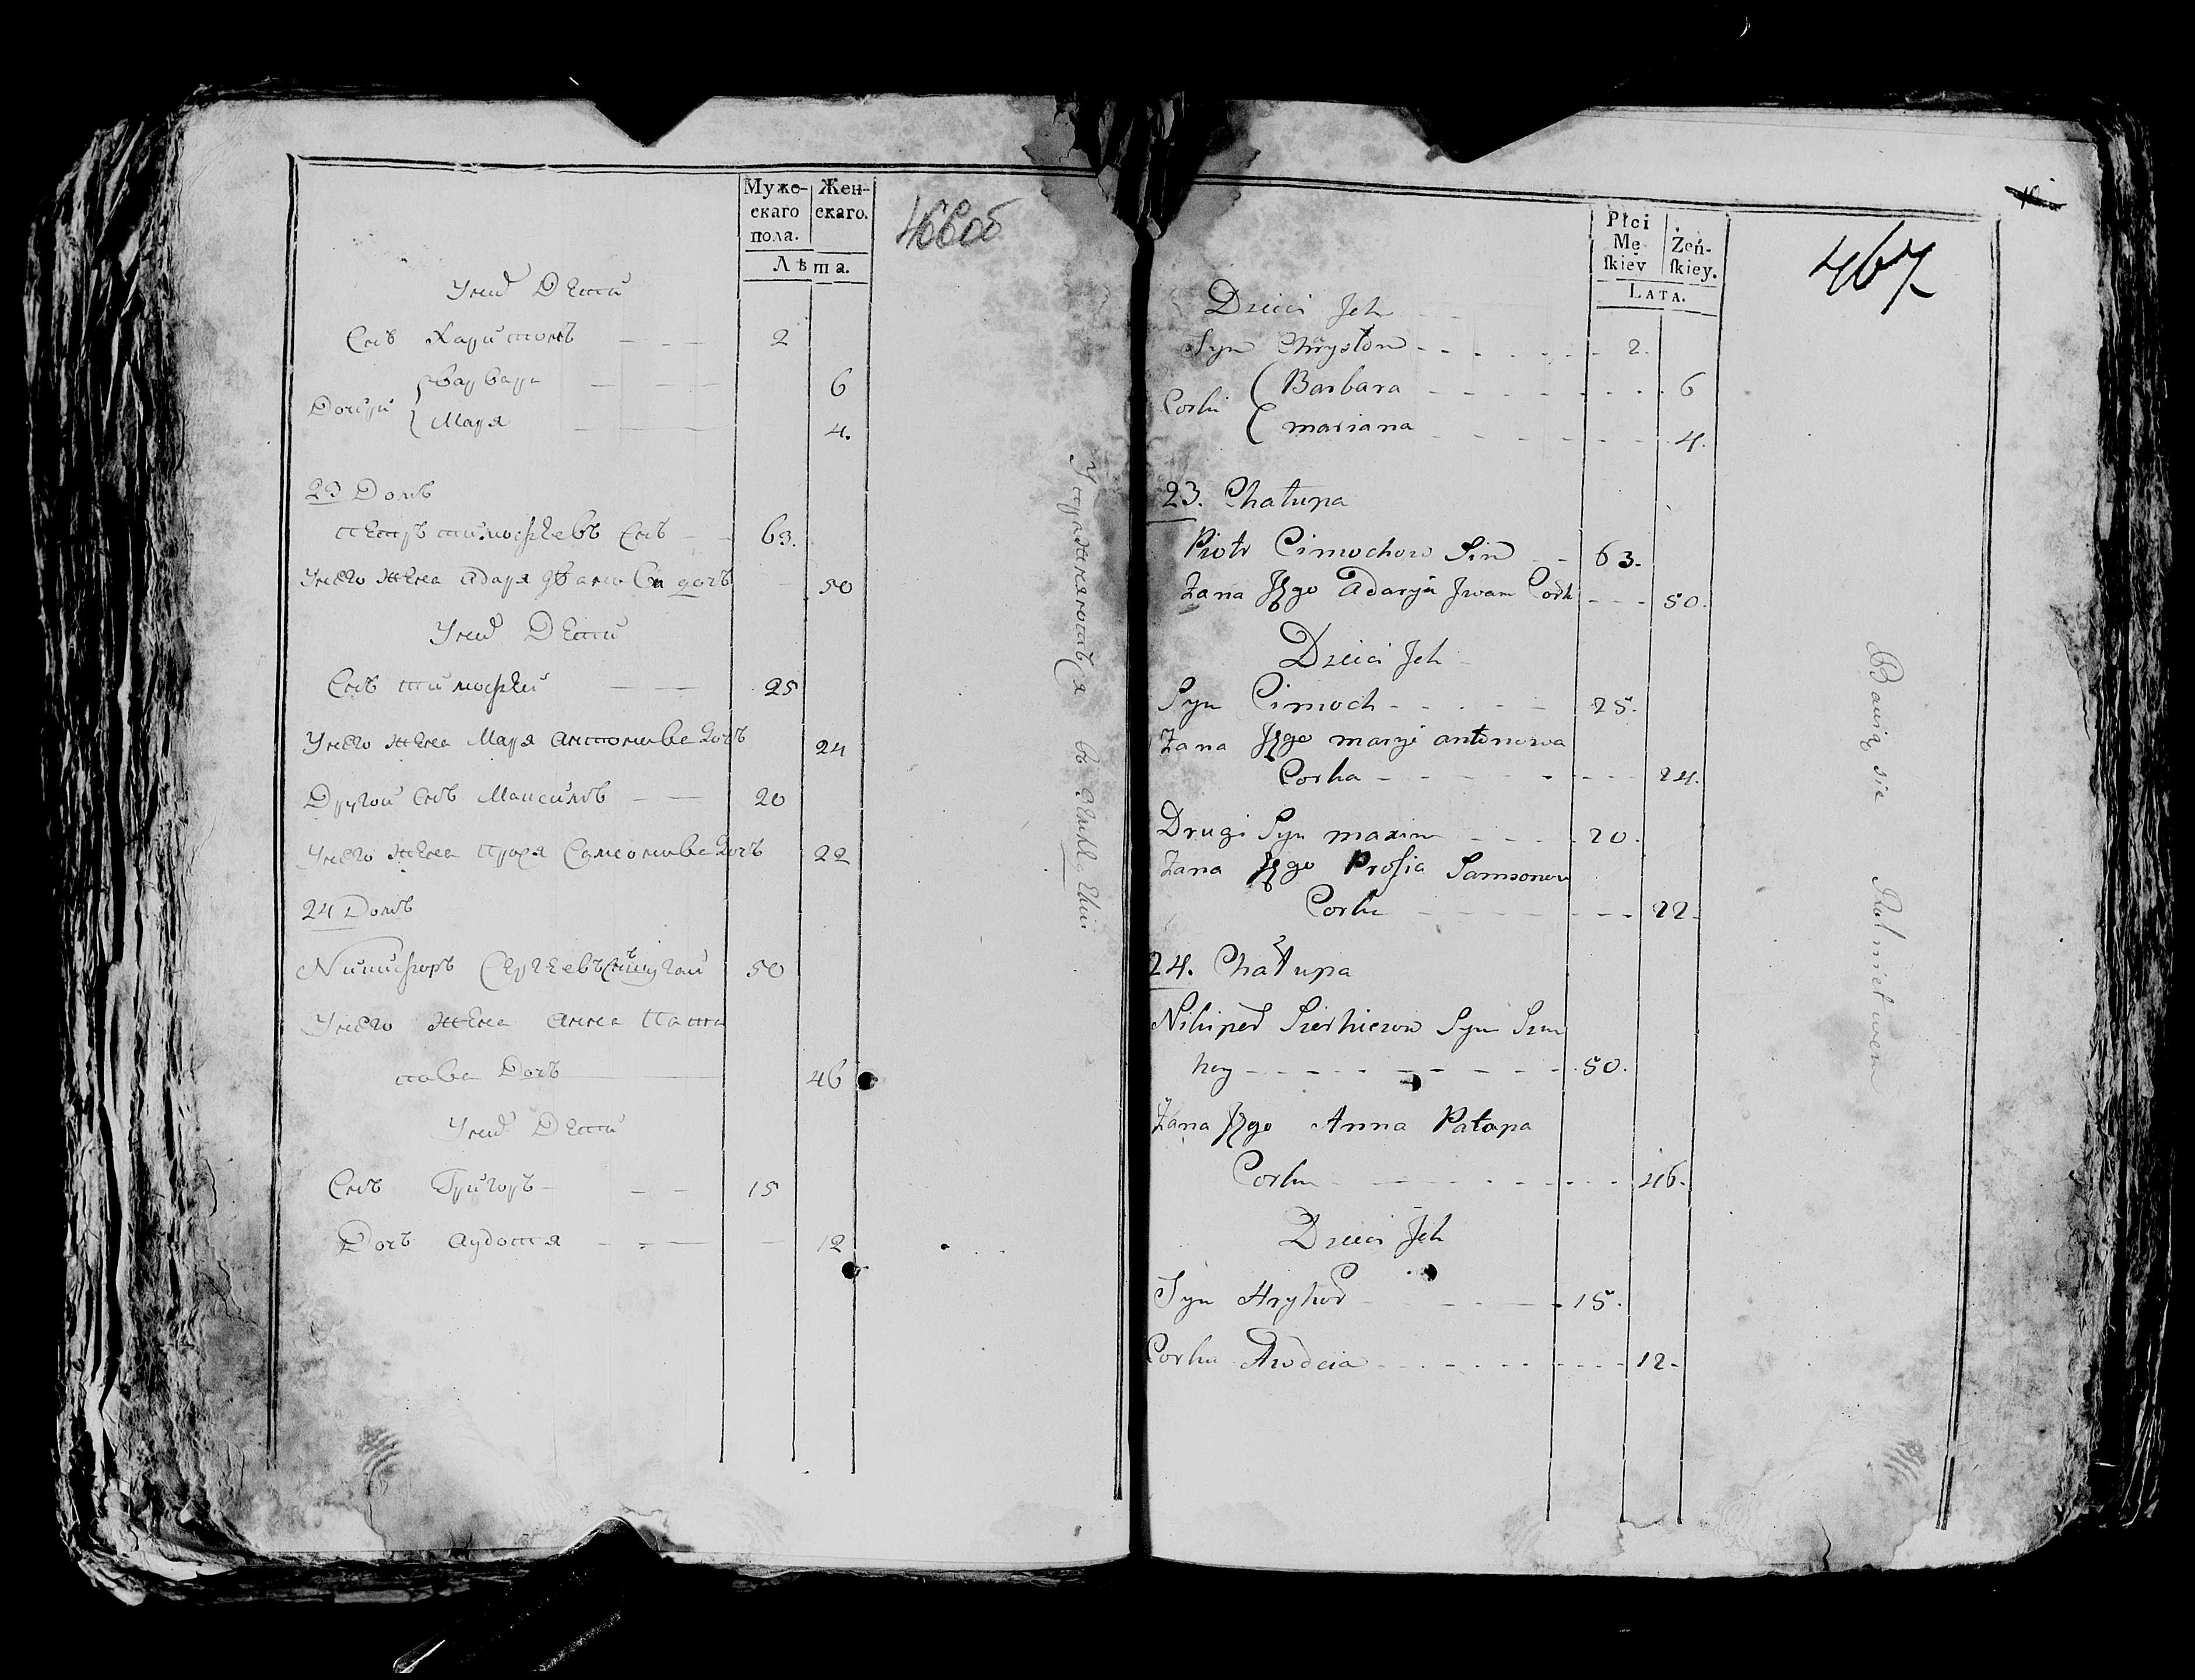 Муже-
скаго
пола.
Жен-
скаго.
Лѣта.
466об
Унихъ Дети
Снъ Харитонъ 2
Дочери
Варвара 6
Маря 4.
23 Домъ
Петръ тимофѣевъ Снъ 63.
Унего жена адаря Ивано ва дочь 50
Унихъ Дети
Снъ тимофѣй 25
Унего жена Маря антонова дочь 24
Другой Снъ Максимъ 20
Унего жена Прося Самсонова дочь 22
24 Домъ
Никифоръ Сергѣевъ Снъ 50
Унего Жена анна Пата
пова Дочь 46
Унихъ Дети
Снъ Григоръ 15
Дочь аудотя 12
Упражняются въ
Płci
Mę-
ſkiey
Żeń-
ſkiey.
LATA.
467
Dzieci Jch
Syn Chryston 2.
Corki
Barbara 6
mariana 4.
23. Chałupa
Piotr Cimochow Sin 63.
Żana Jego adaryia Jwan Cork 50.
Dzieci Jch
Syn Cimoch 25.
Żana Jego maryi antonowa
Corka 24.
Drugi Syn maxim 20.
Żana Jego Proſia Samsonow
Corka 22.
24. Chałupa
Nikiper Sierhieiow Syn Szu
hey 50.
Żana Jego Anna Patapa
Corka 46.
Dzieci Jch
Syn Hryhor 15.
Corka Awdcia 12.
Bawią się Rolnictwem